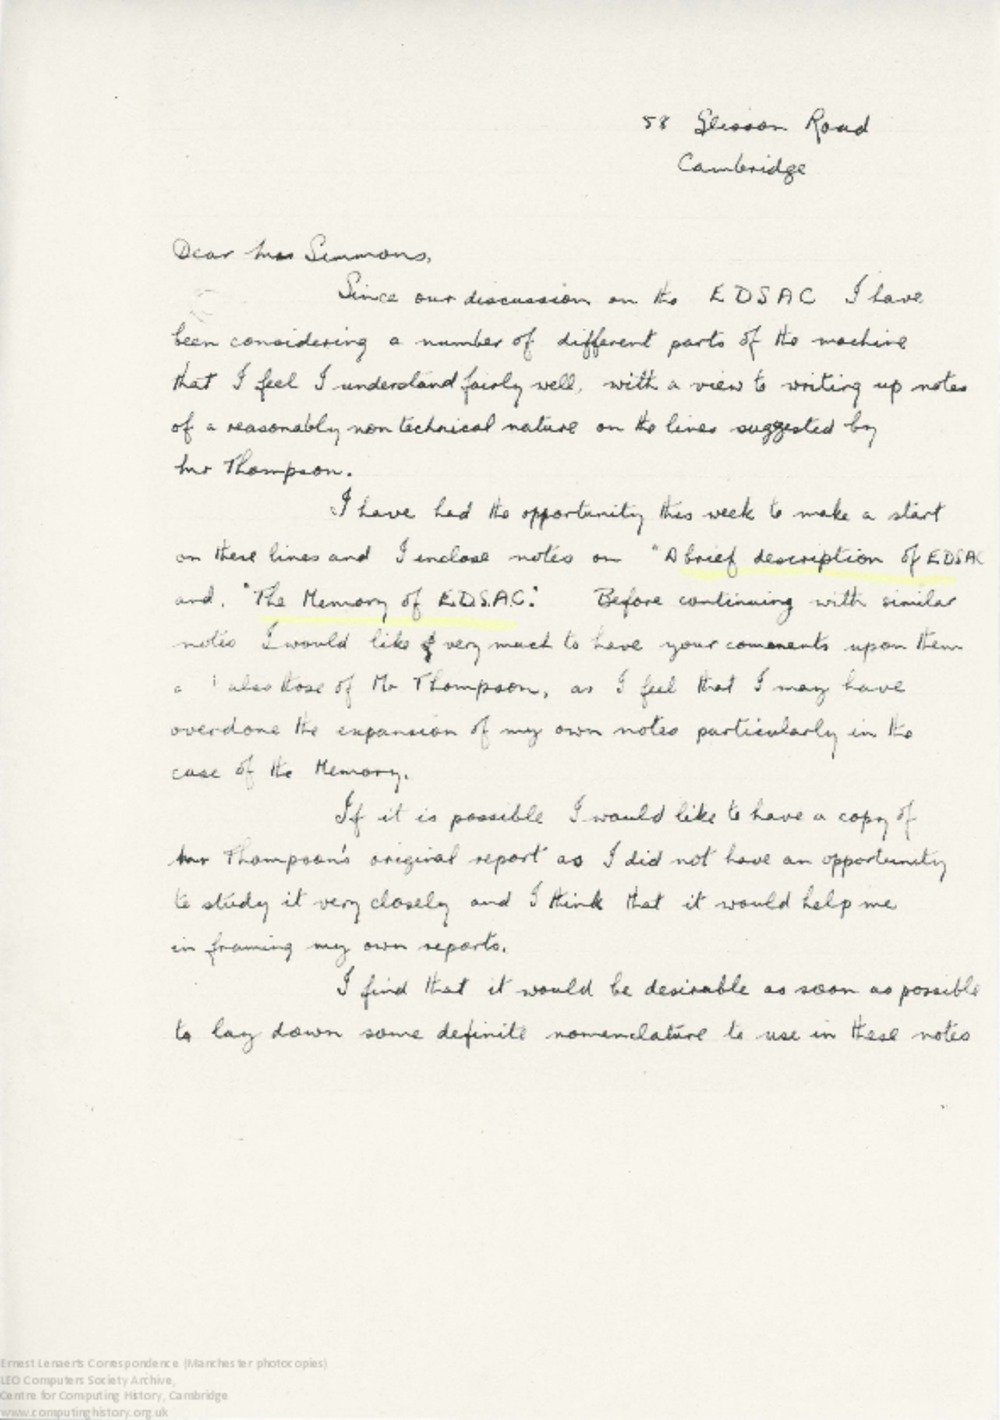 58 Glisson Road
Cambridge
Dear Mr Simmons,
Since our discussion on the EDSAC I have
been considering a number of different parts of the machine
that I feel I understand fairly well, with a view to writing up notes
of a reasonably non technical nature on the lines suggested by
Mr Thompson.
I have had the opportunity this week to make a start
on these lines and I enclose notes on "A brief description of EDSAC
and, "The Memory of E.D.S.A.C." Before continuing with similar
notes I would like very much to have your comments upon them
also those of Mr Thompson, as I feel that I may have
overdone the expansion of my own notes particularly in the
case of the Memory.
If it is possible I would like to have a copy of
Mr Thompson's original report as I did not have an opportunity
to study it very closely and I think that it would help me
in framing my own reports.
I find that it would be desirable as soon as possible
to lay down some definite nomenclature to use in these notes
Ernest Lenaerts Correspondence (Manchester photocopies)
LEO Computers Society Archive,
Centre for Computing History, Cambridge
www.computinghistory.org.uk